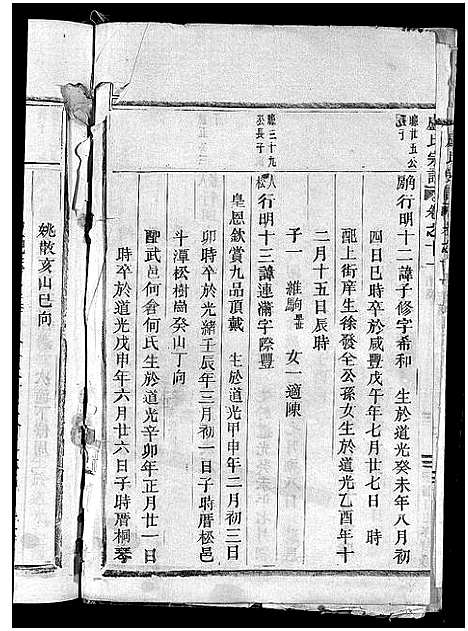 盧氏宗譜 卷之十一
聰廿五公
長行
勵行明十二諱子修字希和 生於道光癸未年八月初
四日巳時卒於咸豐戊午年七月廿七日 時
配上街庠生徐發全公孫女生於道光乙酉年十
二月十五日辰時
子一 維駒 女一適陳
聰三十九
公長子
八松行明十三諱連滿字際豐
皇恩欽賞九品頂戴 生於道光甲申年二月初三日
卯時卒於光緒壬辰年三月初一日子時厝松邑
斗潭松樹崗癸山丁向
配武邑何倉何氏生於道光辛卯年正月廿一日
時卒於道光戊申年六月廿六日子時厝桐琴
姚散亥山巳向